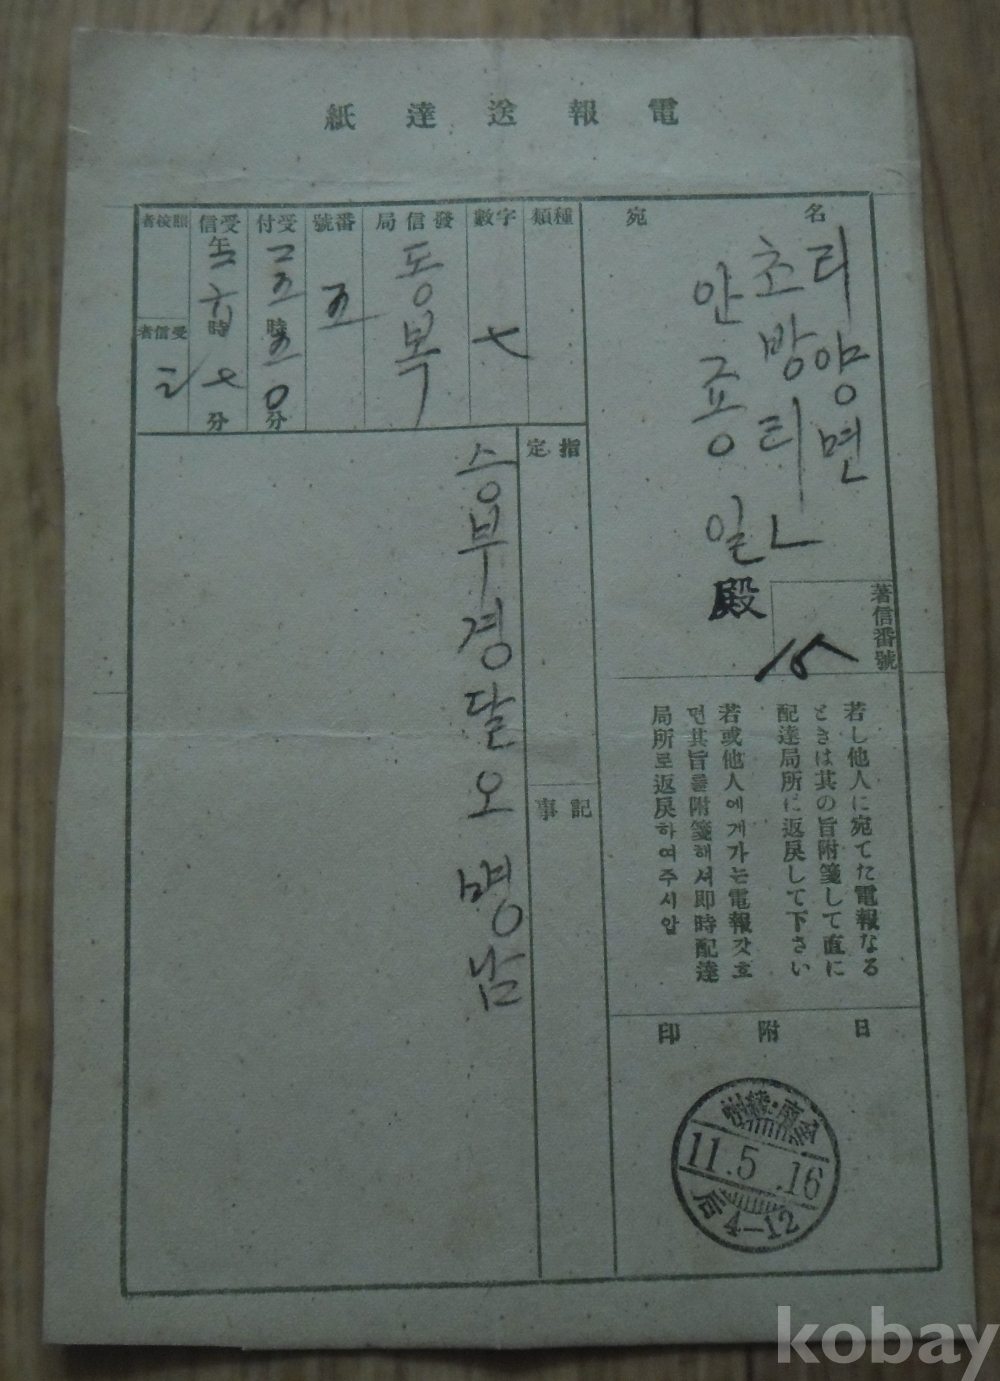 電報送達紙
宛名
리양면
초방리ㄴ
안죵일 殿
著信番號
若し他人に宛てた電報なる
ときは其の旨附箋して直に
配達局所に返戾して下さい
若或他人에게가는電報갓호
면其旨를附箋해셔即時配達
局所로返戾하여주시압
日附印
南.綾州
11.5.16
局
4-12
種類
字數
七
發信局
동복
番號
五
受付
二五時五0分
受信
午
六時
七分
照校者
受信者
指定
記事
승부경달오 명남
kobay